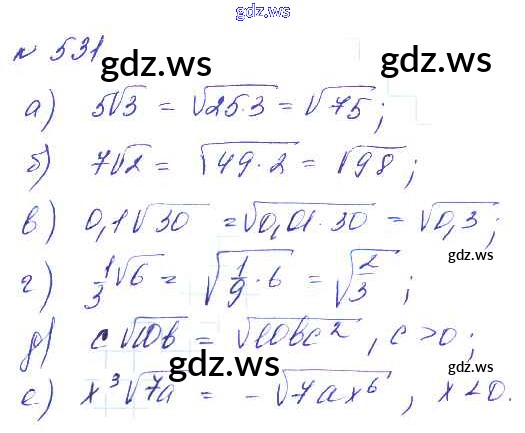 gdz.ws
№ 531
gdz.ws gdz.ws
а) 5√3 = √25·3 = √75;
gdz.ws gdz.ws
б) 7√2 = √49·2 = √98;
в) 0,1√30 = √0,01·30 = √0,3;
gdz.ws gdz.ws
г) 1/3 √6 = √1/9·6 = √2/3;
д) c√10b = √10bc², c>0;
gdz.ws gdz.ws
е) x³√7a = -√7ax⁶, x<0.
gdz.ws